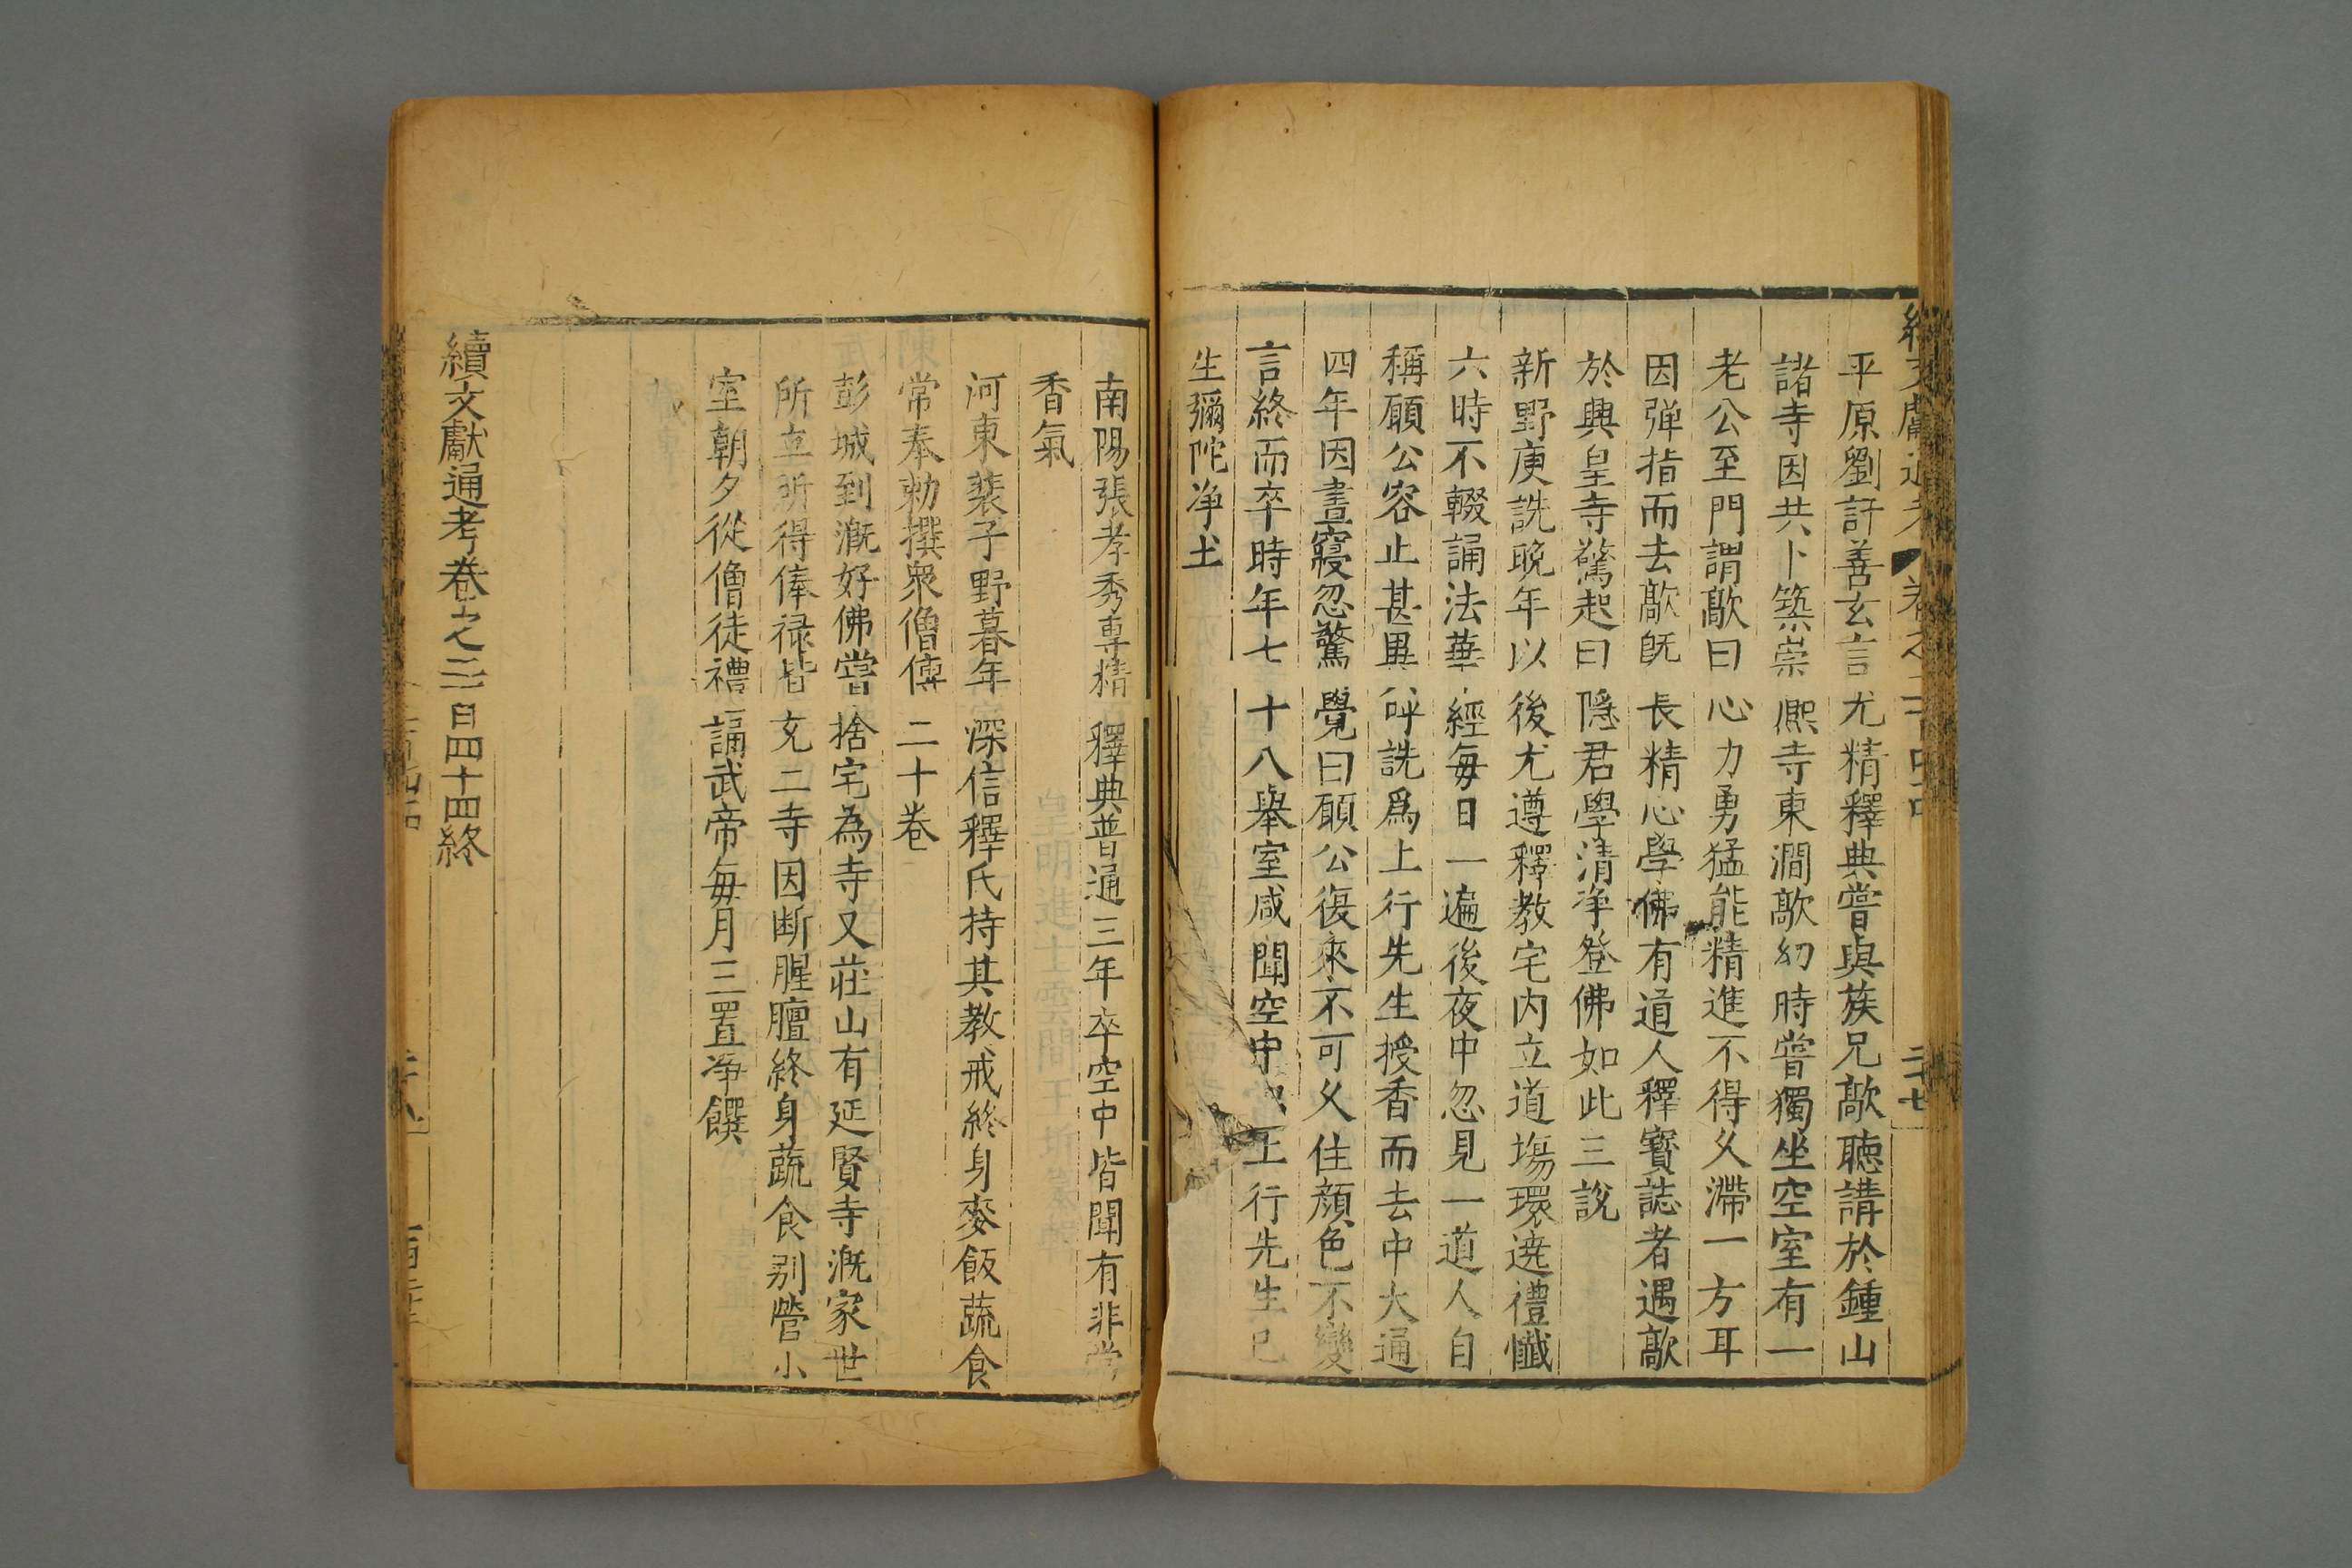 平原劉訏善玄言尤精釋典嘗與族兄歊聽講於鍾山
諸寺因共卜築崇熈寺東澗歊幼時嘗獨坐空室有一
老公至門謂歊曰心力勇猛能精進不得久滯一方耳
因弹指而去歊既長精心學佛有道人釋寳誌者遇歊
於興皇寺驚起曰隱君學清净登佛如此三說
新野庾詵晚年以後尤遵釋教宅内立道場環遶禮懺
六時不輟誦法華經每日一遍後夜中忽見一道人自
稱願公容止甚異呼詵爲上行先生授香而去中大通
四年因晝寢忽驚覺曰願公復來不可久住顔色不變
言終而卒時年七十八舉室咸聞空中上行先生已
生彌陀净土
南陽張孝秀專精釋典普通三年卒空中皆聞有非常
香氣
河東裴子野暮年深信釋氏持其教戒終身麥飯蔬食
常奉勅撰衆僧傳二十卷
彭城到溉好佛嘗捨宅為寺又莊山有延賢寺溉家世
所立所得俸禄皆充二寺因断腥膻終身蔬食别營小
室朝夕從僧徒禮誦武帝每月三置净饌
續文獻通考卷之二百四十四終